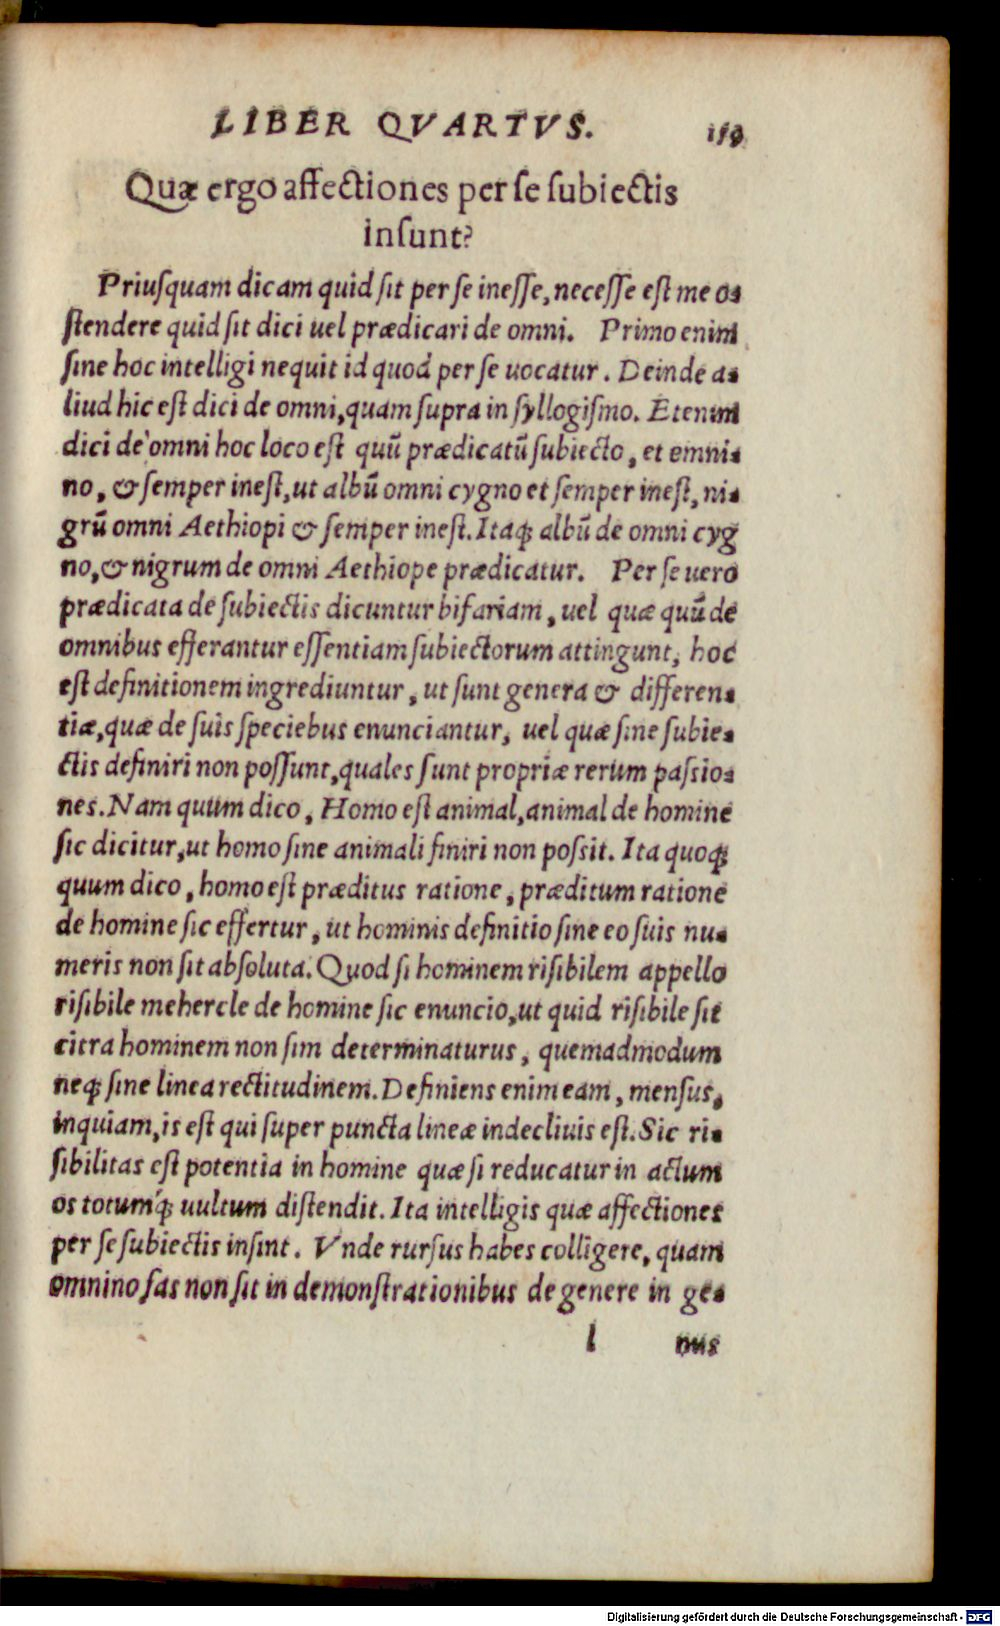 LIBER QVARTVS. 159
Quæ ergo affectiones per se subiectis
insunt?
Priusquam dicam quid sit per se inesse, necesse est me o-
stendere quid sit dici uel prædicari de omni. Primo enim
sine hoc intelligi nequit id quod per se uocatur. Deinde a-
liud hic est dici de omni, quam supra in syllogismo. Etenim
dici de omni hoc loco est quũ prædicatũ subiecto, et omni-
no, & semper inest, ut albũ omni cygno et semper inest, ni-
grũ omni Aethiopi & semper inest. Itaq; albũ de omni cyg
no, & nigrum de omni Aethiope prædicatur. Per se uero
prædicata de subiectis dicuntur bifariam, uel quæ quũ de
omnibus efferantur essentiam subiectorum attingunt, hoc
est definitionem ingrediuntur, ut sunt genera & differen-
tiæ, quæ de suis speciebus enunciantur, uel quæ sine subie-
ctis definiri non possunt, quales sunt propriæ rerum passio-
nes. Nam quum dico, Homo est animal, animal de homine
sic dicitur, ut homo sine animali finiri non possit. Ita quoq;
quum dico, homo est præditus ratione, præditum ratione
de homine sic effertur, ut hominis definitio sine eo suis nu-
meris non sit absoluta. Quod si hominem risibilem appello
risibile mehercle de homine sic enuncio, ut quid risibile sit
citra hominem non sim determinaturus, quemadmodum
neq; sine linea rectitudinem. Definiens enim eam, mensus,
inquiam, is est qui super puncta lineæ indecliuis est. Sic ri-
sibilitas est potentia in homine quæ si reducatur in actum
os totumq́; uultum distendit. Ita intelligis quæ affectiones
per se subiectis insint. Vnde rursus habes colligere, quam
omnino fas non sit in demonstrationibus de genere in ge-
l nus
Digitalisierung gefördert durch die Deutsche Forschungsgemeinschaft - DFG